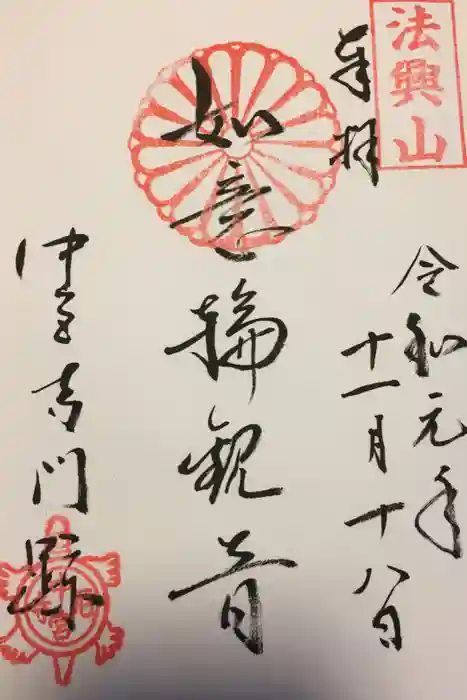 法興山
奉拝
令和元年
十一月十八日
如意輪観音
中宮寺門跡